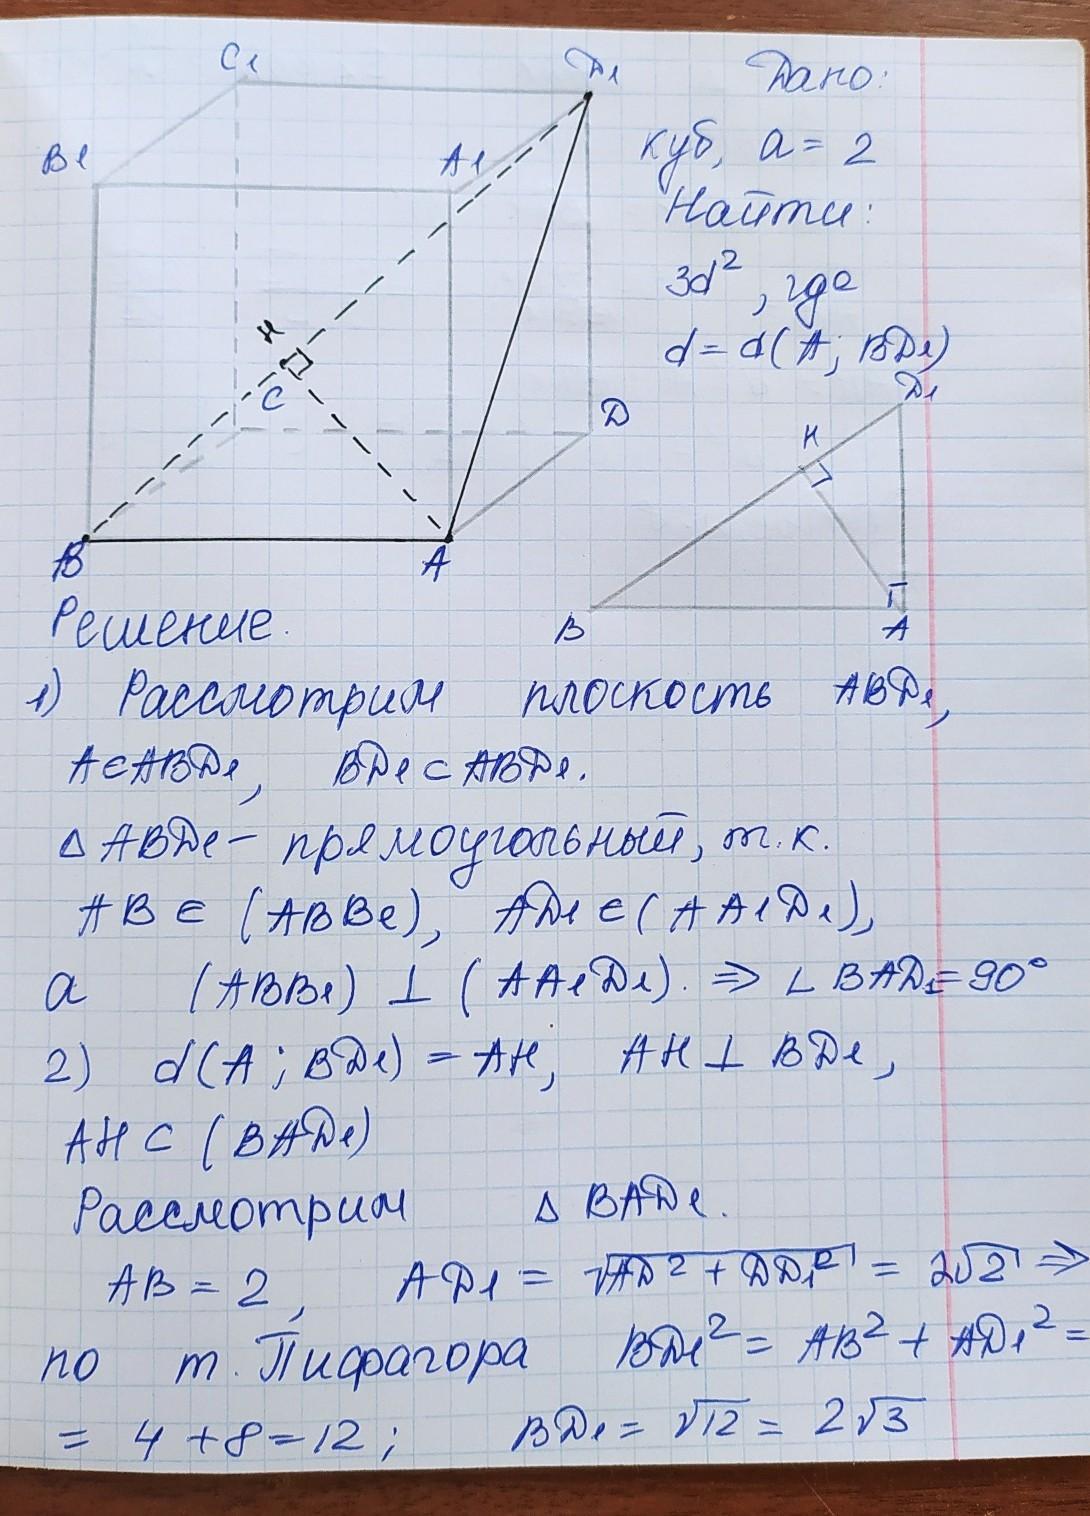 C1
D1
B1
A1
H
C
D
B
A
Дано:
куб, a = 2
Найти:
3d², где
d = d(A; BD1)
D1
H
B
A
Решение.
1) Рассмотрим плоскость ABD1,
A∈ABD1, BD1⊂ABD1.
△ABD1 – прямоугольный, т.к.
AB ∈ (ABB1), AD1 ∈ (AA1D1),
а (ABB1) ⊥ (AA1D1). ⇒ ∠BAD1=90°
2) d(A; BD1) = AH, AH ⊥ BD1,
AH ⊂ (BAD1)
Рассмотрим △ BAD1.
AB = 2, AD1 = √(AD² + DD1²) = 2√2 ⇒
по т. Пифагора BD1² = AB² + AD1² =
= 4 + 8 = 12; BD1 = √12 = 2√3